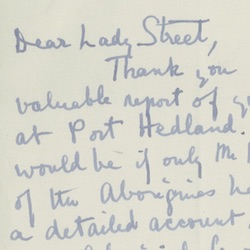 Dear Lady Street,
Thank you
valuable report of
at Port Hedland.
would be if only the
of the Aborigines
a detailed account